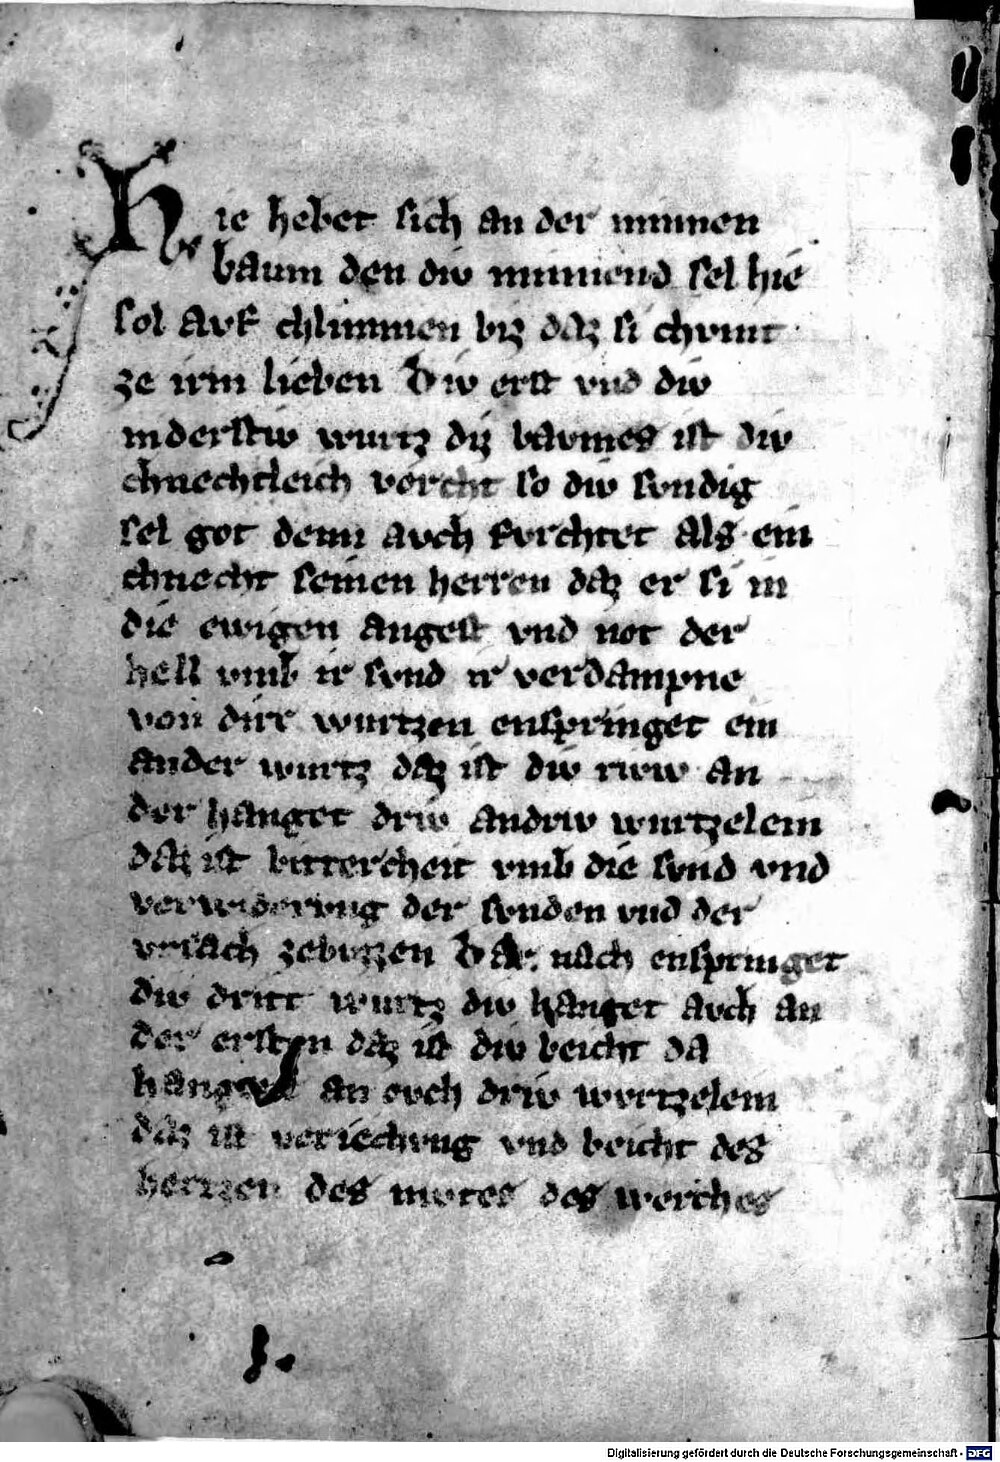 Hie hebet sich an der minnen
baum den div minnend sel hie
sol avf chlimmen biz daz si chvmt
ze irm lieben Div erst vnd div
niderstiv wurtz diz bavmes ist div
chnechtleich vorcht so div svndig
sel got denn avch furchtet als ein
chnecht seinen herren daz er si in
die ewigen angest vnd not der
hell vmb ir svnd ir verdampne
von dirr wurtzen enspringet ein
ander wurtz daz ist div riw an
der hanget driv andriv wurtzelein
daz ist bittercheit vmb die svnd vnd
verwiderung der svnden vnd der
vrsach zebvzzen Dar nach enspringet
div dritt wurtz div hanget avch an
der ersten daz ist div beicht da
an ovch driv wvrtzelein
daz ist veriechvng vnd beicht des
hertzen des mvtes des werches
Digitalisierung gefördert durch die Deutsche Forschungsgemeinschaft - DFG